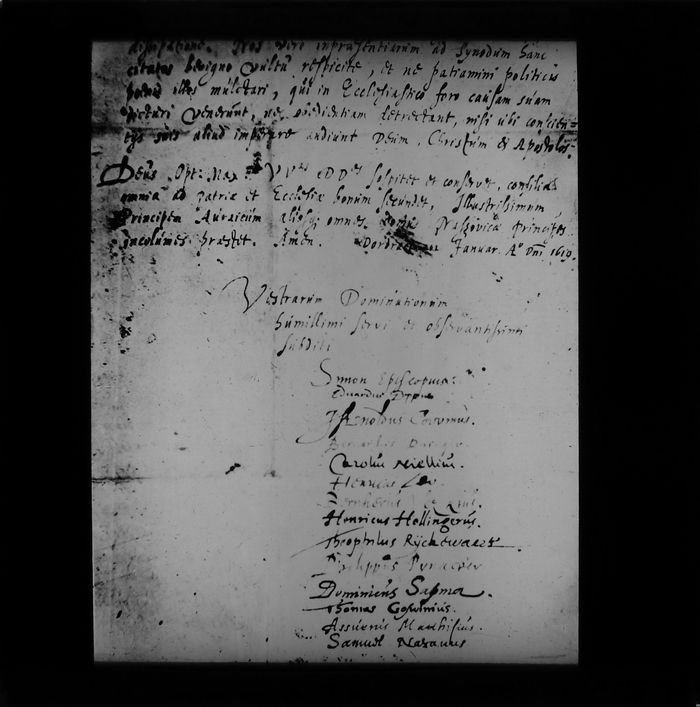 Nos vero inpræsentiarum ad Synodum hanc
citatos benigno vultu respicite, et ne patiamini politicis
poenis illos mulctari, qui in Ecclesiastico foro causam suam
dicturi venerunt, ne obedientiam detrectant, nisi ubi conscien=
tijs suis aliud imperare audiunt Deum, Christum & Apostolos.
Deus Opt. Max. VV DD sospitet et conservet, consilia
omnia ad patriæ et Ecclesiæ bonum secundet, Illustrissimum
Principem Auraicum aliosq omnes Nassovicæ Principes
incolumes præstet. Amen. Januar. Aº Dni 1619.
Vestrarum Dominationum
humillimi servi et observantissimi
subditi
Simon Episcopius.
Eduardus Poppius
Arnoldus Corvinus.
Carolus Niellius.
Henricus Leo
Henricus Hollingerus.
Theophilus Ryckewaert.
Philippus Pynacker
Dominicus Sapma.
Thomas Goswinius.
Assuerus Matthisius.
Samuel Naranus